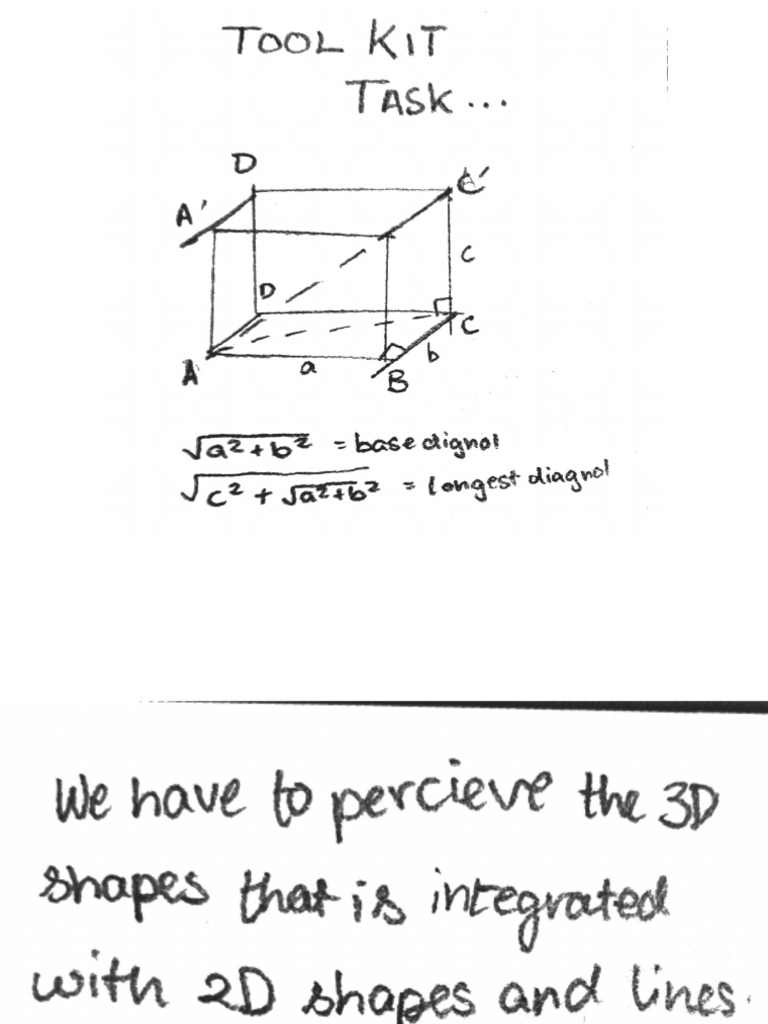 TOOL KIT
TASK...
D
A'
C'
c
D
C
A
a
b
B
√a²+b² = base dignol
√c² + √a²+b²² = longest diagnol
We have to percieve the 3D
shapes that is integrated
with 2D shapes and lines.